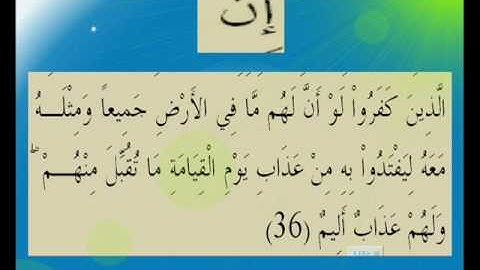 إِنَّ
الَّذِينَ كَفَرُواْ لَوْ أَنَّ لَهُم مَّا فِي الأَرْضِ جَمِيعاً وَمِثْلَـــهُ
مَعَهُ لِيَفْتَدُواْ بِهِ مِنْ عَذَابِ يَوْمِ الْقِيَامَةِ مَا تُقُبِّلَ مِنْهُـــمْ ۖ
وَلَهُمْ عَذَابٌ أَلِيمٌ (36)